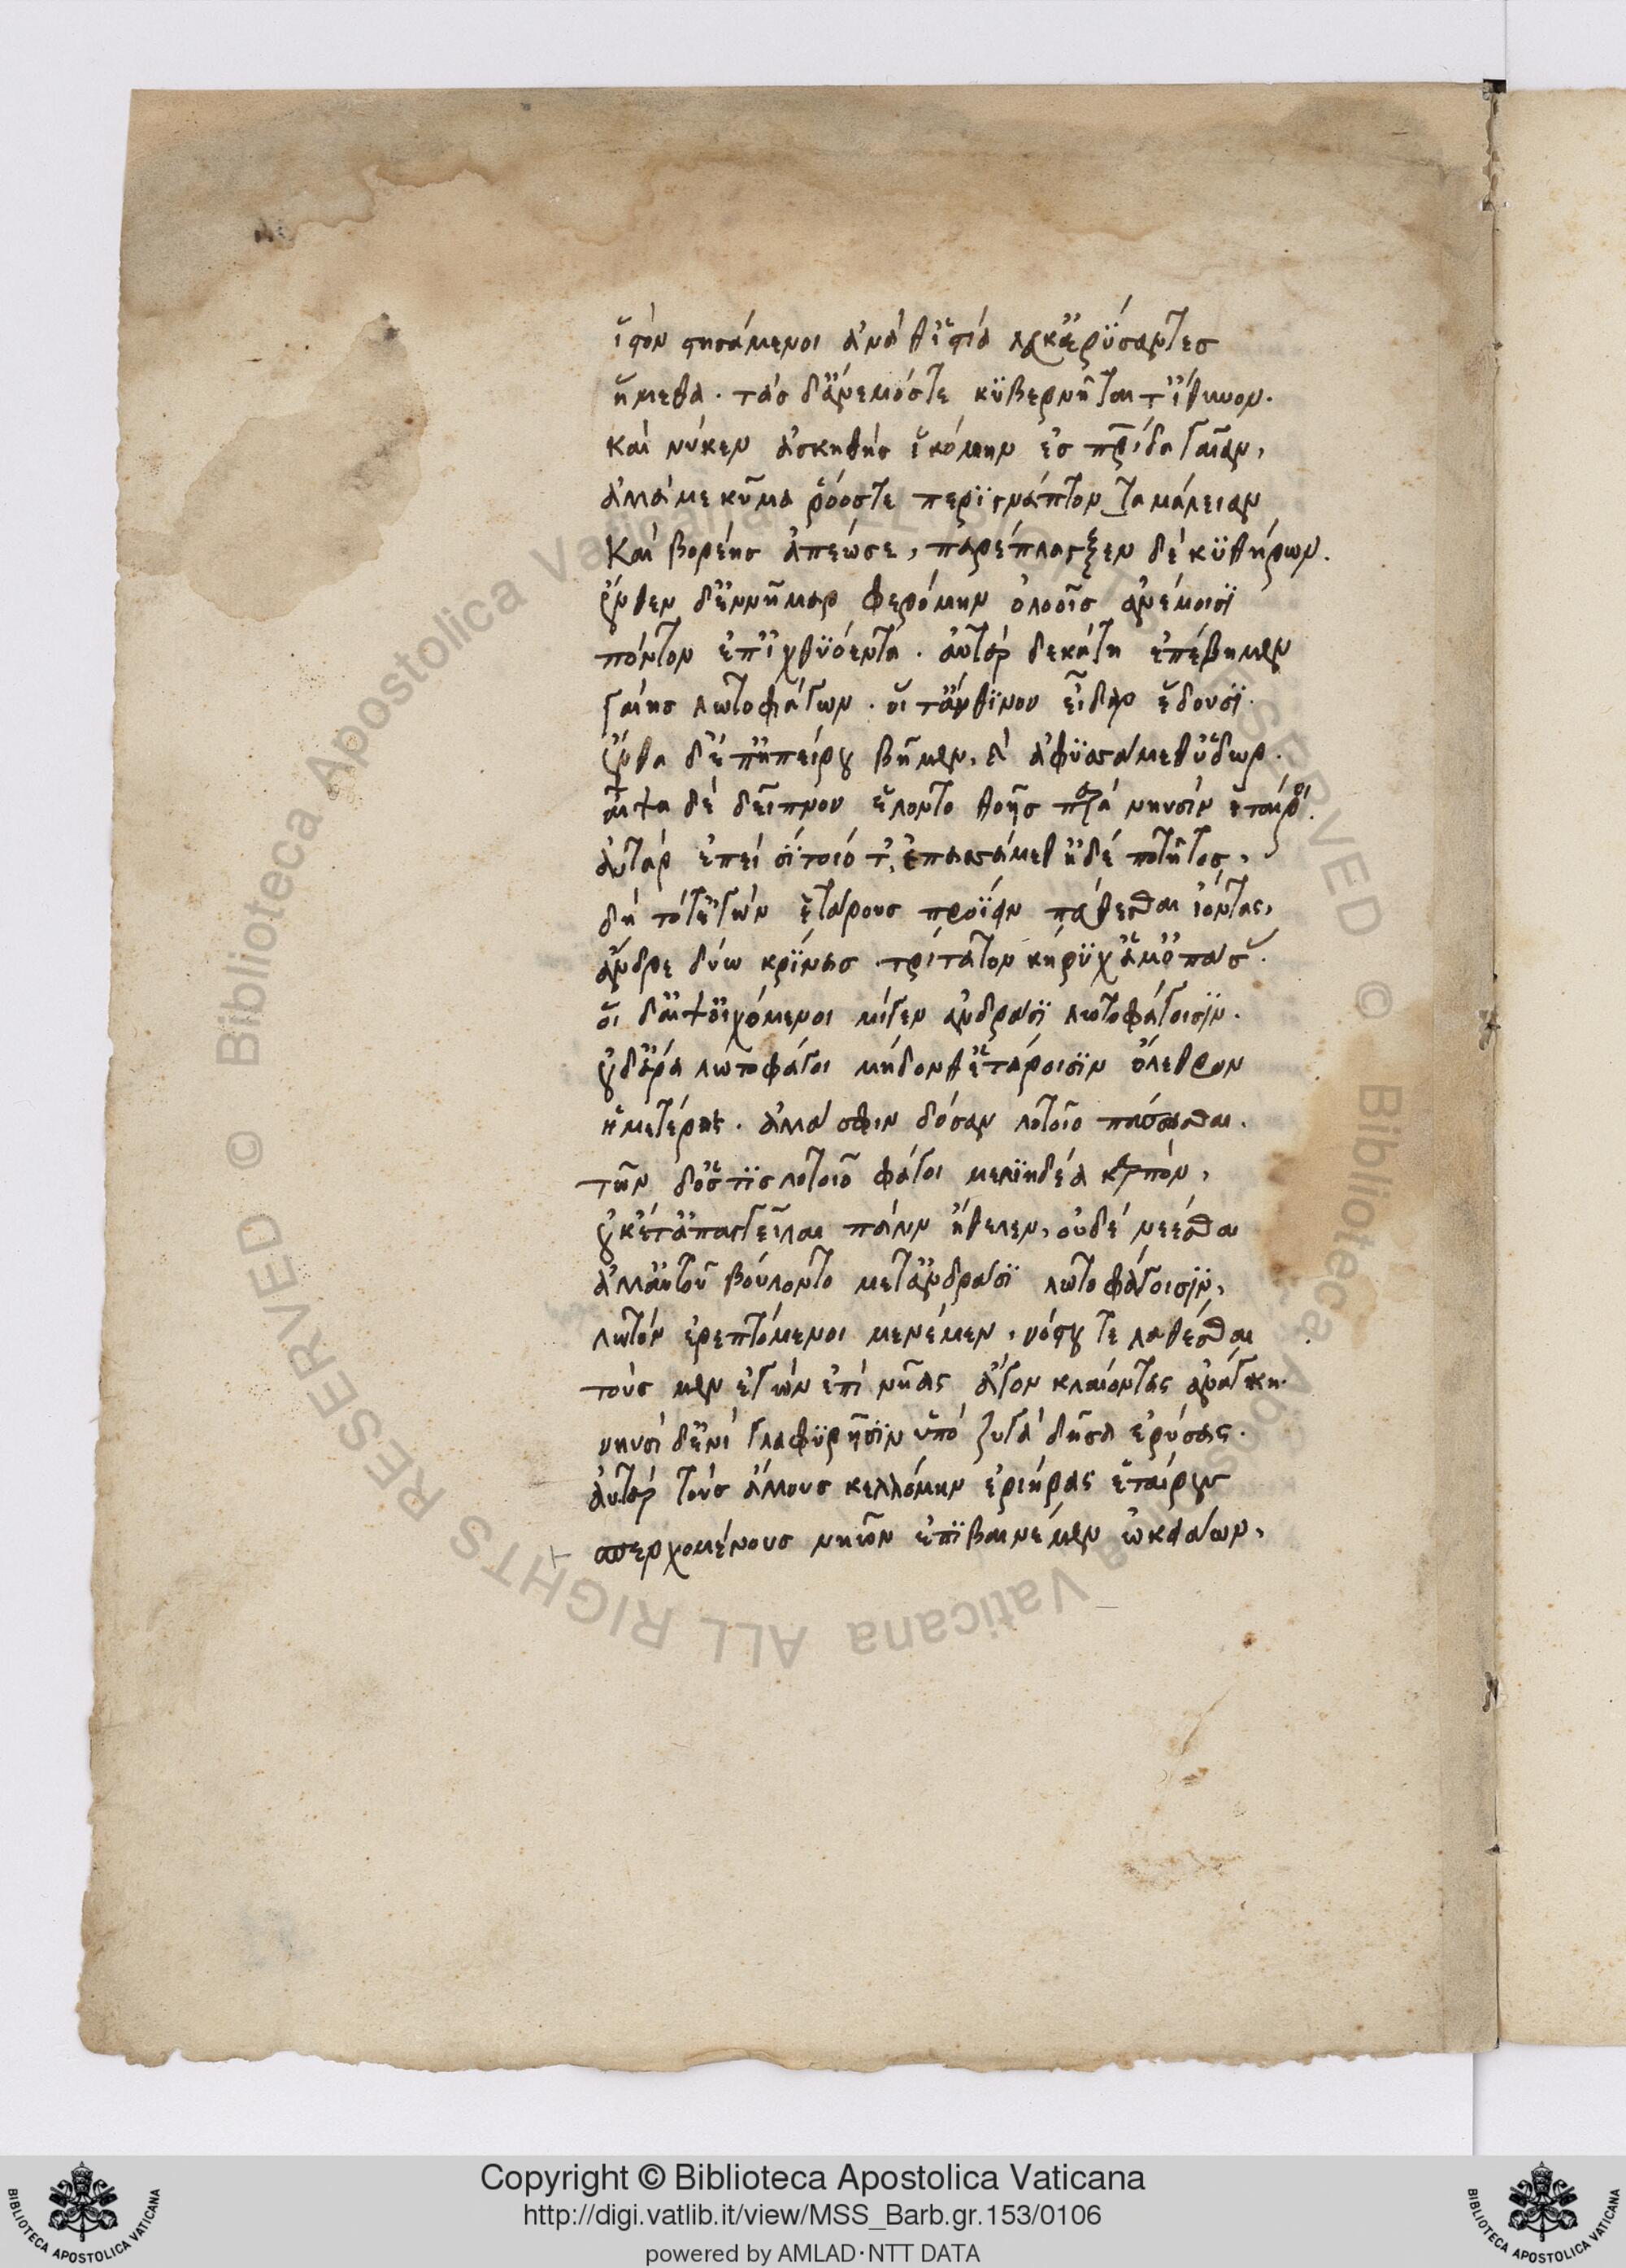 ἵστὸν στησάμενοι ἀνά θἵστία λευκἀερύσαντες
ἥμεθα. τάσ δἄνεμόστε κϋβερνῆται τἴθυνον.
καί νύκεν ἀσκηθήσ ἱκόμην ἐσ πρίδα γαῖαν,
ἀλλάμε κῦμα ῥόοστε περϊγνάπτοντα μάλειαν
Καί βορέησ ἀπεώσε, παρέπλαγξεν δέ κϋθήρων.
ἔνθεν δἐννῆμαρ φερόμην ὀλοοῖσ ἀνέμοισϊ
πόντον ἐπἰχθϋόεντα. ἀυτάρ δεκάτη ἐπέβημεν
γαίησ λωτοφάγων. οἵ τἄνθϊνον εἶδαρ ἔδουσϊ.
ἔνθα δέ πἠπείρου βῆμεν, καί ἀφϋσσάμεθὕδωρ.
αἶψα δέ δεῖπνον ἕλοντο θοῆσ παρά νηυσίν ἑταῖροι.
ἀυτάρ ἐπεί σίτοιό τ, ἐπασσάμεθ ἠδέ ποτῆτος,
δή τότἐγών ἑτάρουσ προΐην πάθεσθαι ἰόντας,
ἄνδρε δύω κρϊνασ τρίτατον κήρϋχἅμὄπασσ.
οἵ δἀιψὀιχόμενοι μίγεν ἀνδράσϊ λωτοφάγοισϊν.
οὐδἄρα λωτοφάγοι μήδονθἑτάροισϊν ὄλεθρον
ἡμετέροις. ἀλλά σφιν δόσαν λοτοῖο πάσασθαι.
τῶν δὅστϊσ λοτοιο φάγοι μελϊηδέα καρπόν,
οὐκέτἀπαγγεῖλαι πάλϊν ἤθελεν, οὐδέ νεέσθαι
ἀλλἀυτοῦ βούλοντο μετἀνδράσϊ λωτοφάγοισϊν,
λωτόν ἐρεπτόμενοι μενέμεν, νόστου τε λαθέσθαι
τούσ μεν ἐγών ἐπί νῆας ἄγον κλαίοντας ἀνάγκη.
νηυσί δἐνί γλαφϋρῆσϊν ὑπό ζυγά δῆσα ἐρύσας.
ἀυτάρ τούσ ἄλλουσ κελλόμην ἐριήρας ἑταίρους
σπερχομένουσ νηῶν ἐπϊβαινέμεν ὠκεάων,
Copyright © Biblioteca Apostolica Vaticana
http://digi.vatlib.it/view/MSS_Barb.gr.153/0106
powered by AMLAD·NTT DATA
BIBLIOTECA APOSTOLICA VATICANA
BIBLIOTECA APOSTOLICA VATICANA
© Biblioteca Apostolica Vaticana ALL RIGHTS RESERVED © Biblioteca Apostolica Vaticana ALL RIGHTS RESERVED